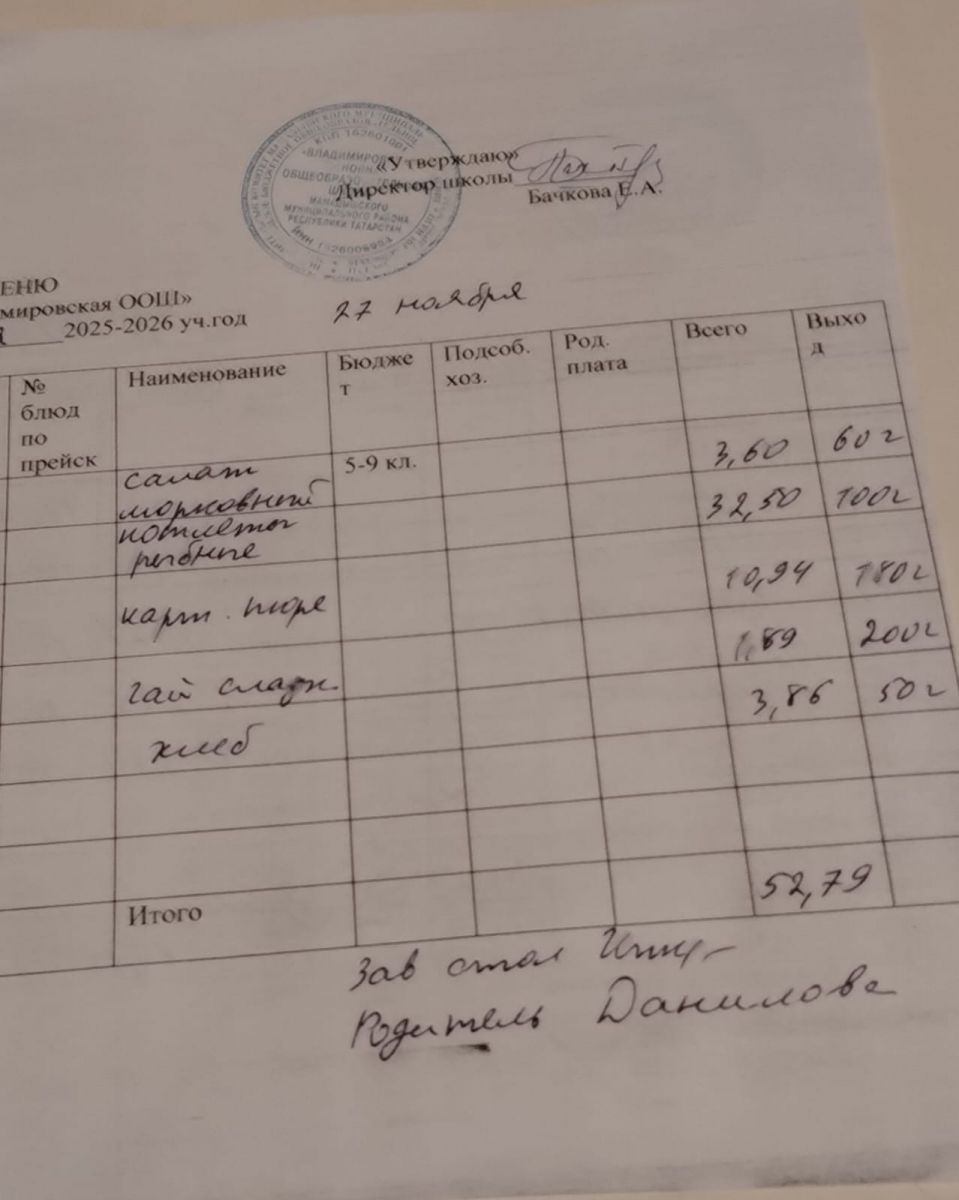 КПП 162601001
«ВЛАДИМИРОВ
ОБЩЕОБРАЗО
МАМАДЫШСКОГО
МУНИЦИПАЛЬНОГО РАЙОНА
РЕСПУБЛИКИ ТАТАРСТАН
ИНН
«Утверждаю»
Директор школы
Бачкова Е.А.
ЕНЮ
мировская ООШ»
2025-2026 уч.год
27 ноября
№ блюд по прейск Наименование Бюджет Подсоб. хоз. Род. плата Всего Выход
салат морковный 5-9 кл. 3,60 60 г
котлеты рыбные 32,50 100г
карт. пюре 10,94 180г
чай сладк. 1,89 200г
хлеб 3,86 50 г
Итого 52,79
Зав стол
Родитель Данилова